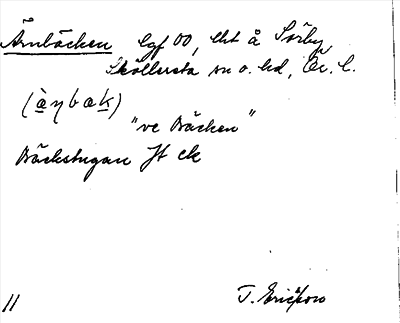 Ärnbäcken lgf 00, lht å Sörby,
Sköllersta sn o. hd, Ör. l.
(àŋbæk)
"ve Bäcken"
Bäckstugan Jt ck
11 T. Ericsson